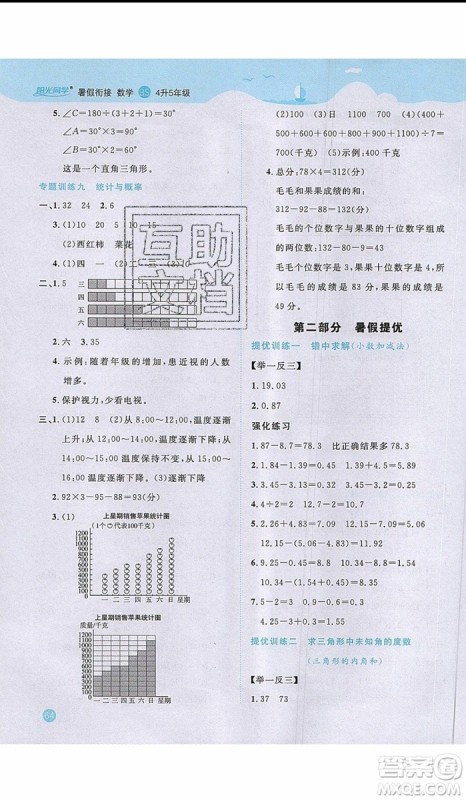 阳光同学 暑假衔接 数学 BS 4升5年级
5. ∠C=180÷(3+2+1)=30°
∠A=30°×3=90°
∠B=30°×2=60°
这是一个直角三角形。
专题训练九 统计与概率
一、1. 32 24 2. 6
3. (1)20 10 5 15 10
(2)西红柿 菜花
4. (1)四 (2)二 三 (2)10
二、1. 三
五
四
六
2. 六 3. 35
4. 示例:随着年级的增加,患近视的人数
增多。
5. 保护视力,少看电视。
三、1. (1)12 8 (2)6:00~8:00温度逐渐
上升;8:00~14:00温度逐渐下降;
14:00~16:00温度保持不变,16:00~
18:00温度逐渐下降。
2. 92×3-95-88=93(分)
3. (1) 上星期销售苹果统计图
(1个○代表100千克)
一 二 三 四 五 六 日 星期
上星期销售苹果统计图
质量/千克
1100
1000
900
800
700
600
500
400
300
200
100
0
一 二 三 四 五 六 日 星期
64
(2)日 1100 (3)一 400 (4)400+
500+600+700+800+1000+1100)÷7=
700(千克) (5)示例:700千克
4. 总分:78×4=312(分)
毛毛和果果成绩的和:
312-92-90=130(分)
毛毛和果果的十位数字与个位数字组成
的两位数,毛毛的成绩十位数字是8,果果
的成绩个位数字是9,所以毛毛的成绩是
49分。
第二部分 暑假提优
提优训练一 错中求解(小数加减法)
【举一反三】
1. 19.03
2. 0.87
强化练习
1. 87-8.7=78.3 比正确结果多78.3
2. 1.84-1.39=0.45 8-0.45=7.55
3. 2.91-2.88=0.03 1.35-0.03=1.32
4. 7÷2=3.5
5. 7.26+1.53=8.79 8.79+1.53=
10.32
6. 9.00-8.2=0.8 14.75-0.8=13.95
13.95-8.2=5.75
7. 5.2-2=3.2 3.2+1.05=4.25
4.25-3+0.3=1.55
提优训练二 求三角形中未知角的度数
(三角形的内角和)
【举一反三】
1. 37 73
互助
文档
答案圈
MXQE.COM